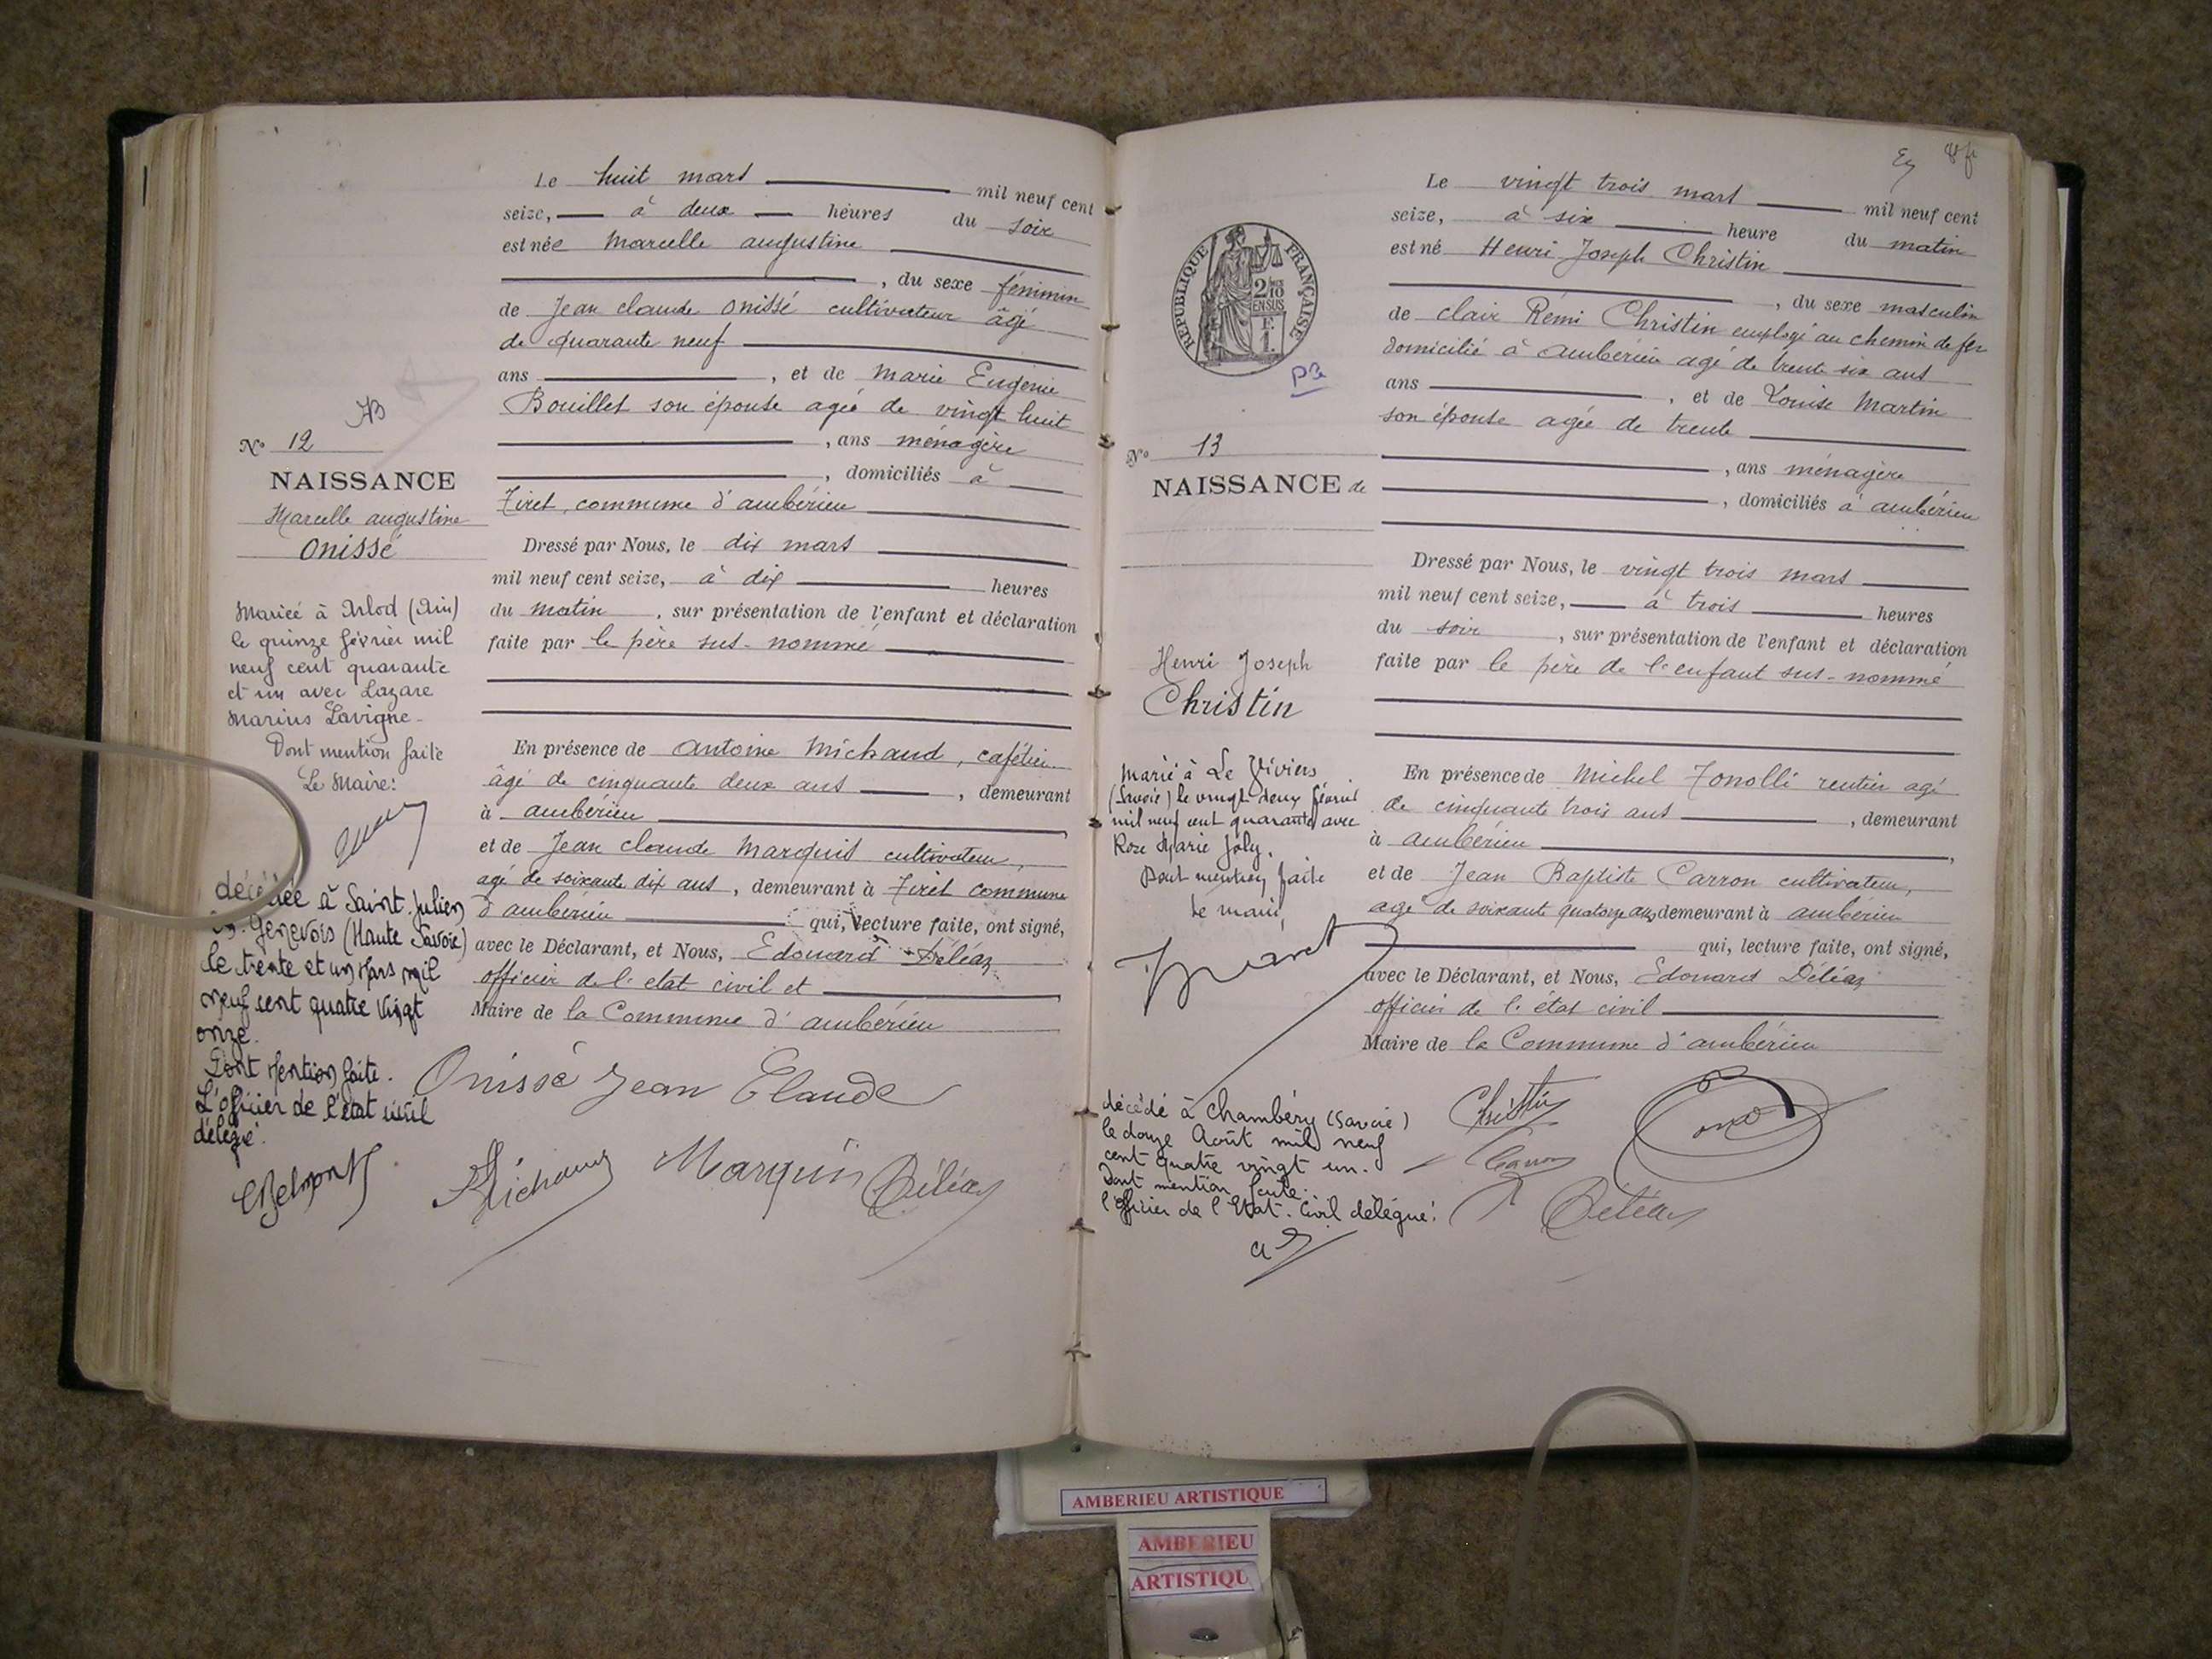 Le huit mars mil neuf cent
seize, à deux heures du soir
est née Marcelle augustine
, du sexe féminin
de Jean claude Onissé cultivateur âgé
de quarante neuf
ans , et de Marie Eugénie
Bouillet son épouse agée de vingt huit
, ans ménagère
, domiciliés à
Tiret, commune d'ambérieu
Dressé par Nous, le dix mars
mil neuf cent seize, à dix heures
du matin , sur présentation de l'enfant et déclaration
faite par le père sus-nommé
En présence de Antoine Michaud, cafétier
âgé de cinquante deux ans , demeurant
à ambérieu
et de Jean claude Marquis cultivateur,
agé de soixante dix ans, demeurant à Tiret commune
d'ambérieu qui, lecture faite, ont signé,
avec le Déclarant, et Nous, Edouard Déléaz
officier de l'etat civil et
Maire de la Commune d'ambérieu
Onissé Jean Claude
Michaud Marquis Déléaz
AB
N° 12
NAISSANCE
Marcelle augustine
Onissé
Mariée à Arlod (Ain)
le quinze février mil
neuf cent quarante
et un avec Lazare
Marius Lavigne-
Dont mention faite
Le Maire:
décédée à Saint Julien
en Genevois (Haute Savoie)
le trente et un Mars mil
neuf cent quatre vingt
onze.
Dont mention faite.
L'officier de l'état civil
délégué.
8 fr
Le vingt trois mars mil neuf cent
seize, à six heure du matin
est né Henri Joseph Christin
, du sexe masculin
de clair Rémi Christin employé au chemin de fer
domicilié à ambérieu agé de trente six ans
ans , et de Louise Martin
son épouse agée de trente
, ans ménagère
, domiciliés à ambérieu
Dressé par Nous, le vingt trois mars
mil neuf cent seize, à trois heures
du soir , sur présentation de l'enfant et déclaration
faite par le père de l'enfant sus-nommé
En présence de Michel Tonolli rentier agé
de cinquante trois ans , demeurant
à ambérieu ,
et de Jean Baptiste Carron cultivateur,
agé de soixante quatorze ans demeurant à ambérieu
qui, lecture faite, ont signé,
avec le Déclarant, et Nous, Edouard Déléaz
officier de l'état civil
Maire de la Commune d'ambérieu
Christin
Carron
Déléaz
REPUBLIQUE FRANÇAISE
2/10
EN SUS
1 F.
N° 13
NAISSANCE de
Henri Joseph
Christin
Marié à Le Viviers
(Savoie) le vingt deux février
mil neuf cent quarante avec
Rose Marie Joly.
Dont mention faite
Le maire,
décédé à Chambéry (Savoie)
le douze Août mil neuf
cent quatre vingt un.
Dont mention faite.
l'officier de l'Etat-Civil délégué:
AMBERIEU ARTISTIQUE
AMBERIEU
ARTISTIQU